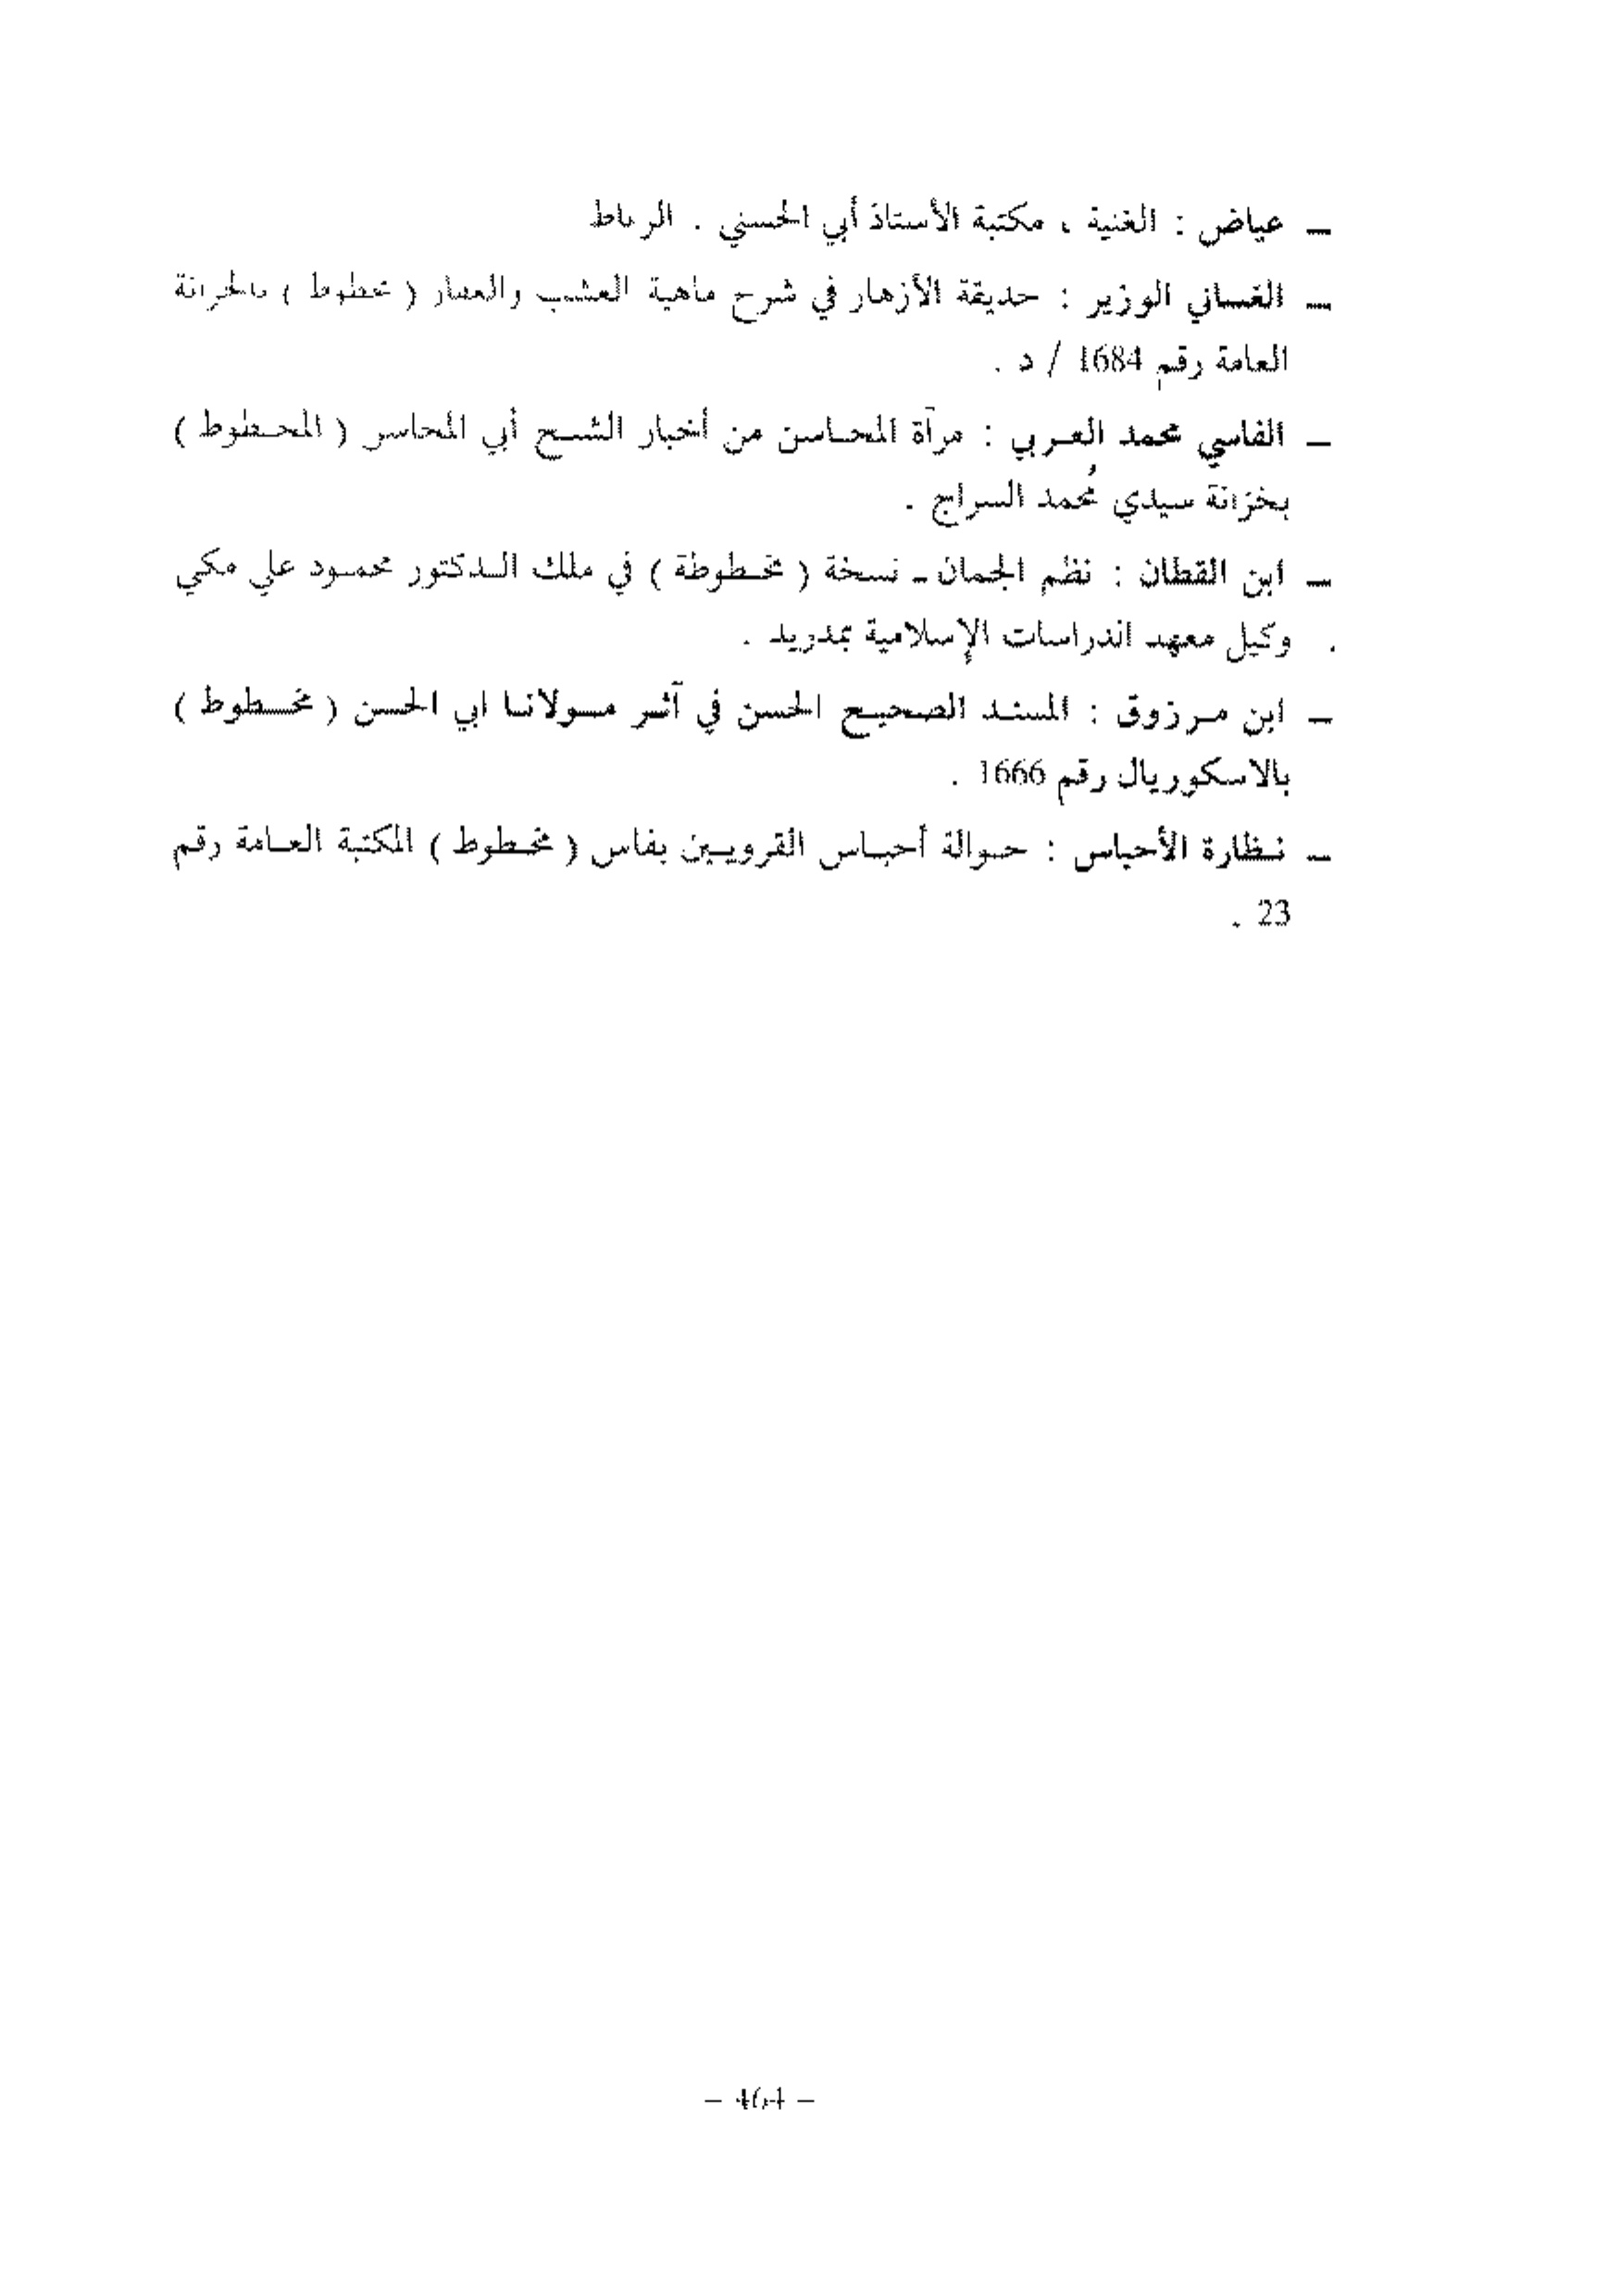 ـ عياض : الغنية ، مكتبة الأستاذ أبي الحسني . الرباط
ـ الغساني الوزير : حديقة الأزهار في شرح ماهية العشب والعقار ( مخطوط ) بالخزانة
العامة رقم 1684 / د .
ـ الفاسي محمد العربي : مرآة المحاسن من أخبار الشيخ أبي المحاسن ( المخطوط )
بخزانة سيدي مُحمد السراج .
ـ ابن القطان : نظم الجمان ـ نسخة ( مخطوطة ) في ملك الدكتور محمود علي مكي
وكيل معهد الدراسات الإسلامية بمدريد .
ـ ابن مرزوق : المسند الصحيح الحسن في آثر مولانا ابي الحسن ( مخطوط )
بالاسكوريال رقم 1666 .
ـ نظارة الأحباس : حوالة أحباس القرويين بفاس ( مخطوط ) المكتبة العامة رقم
23 .
– 464 –